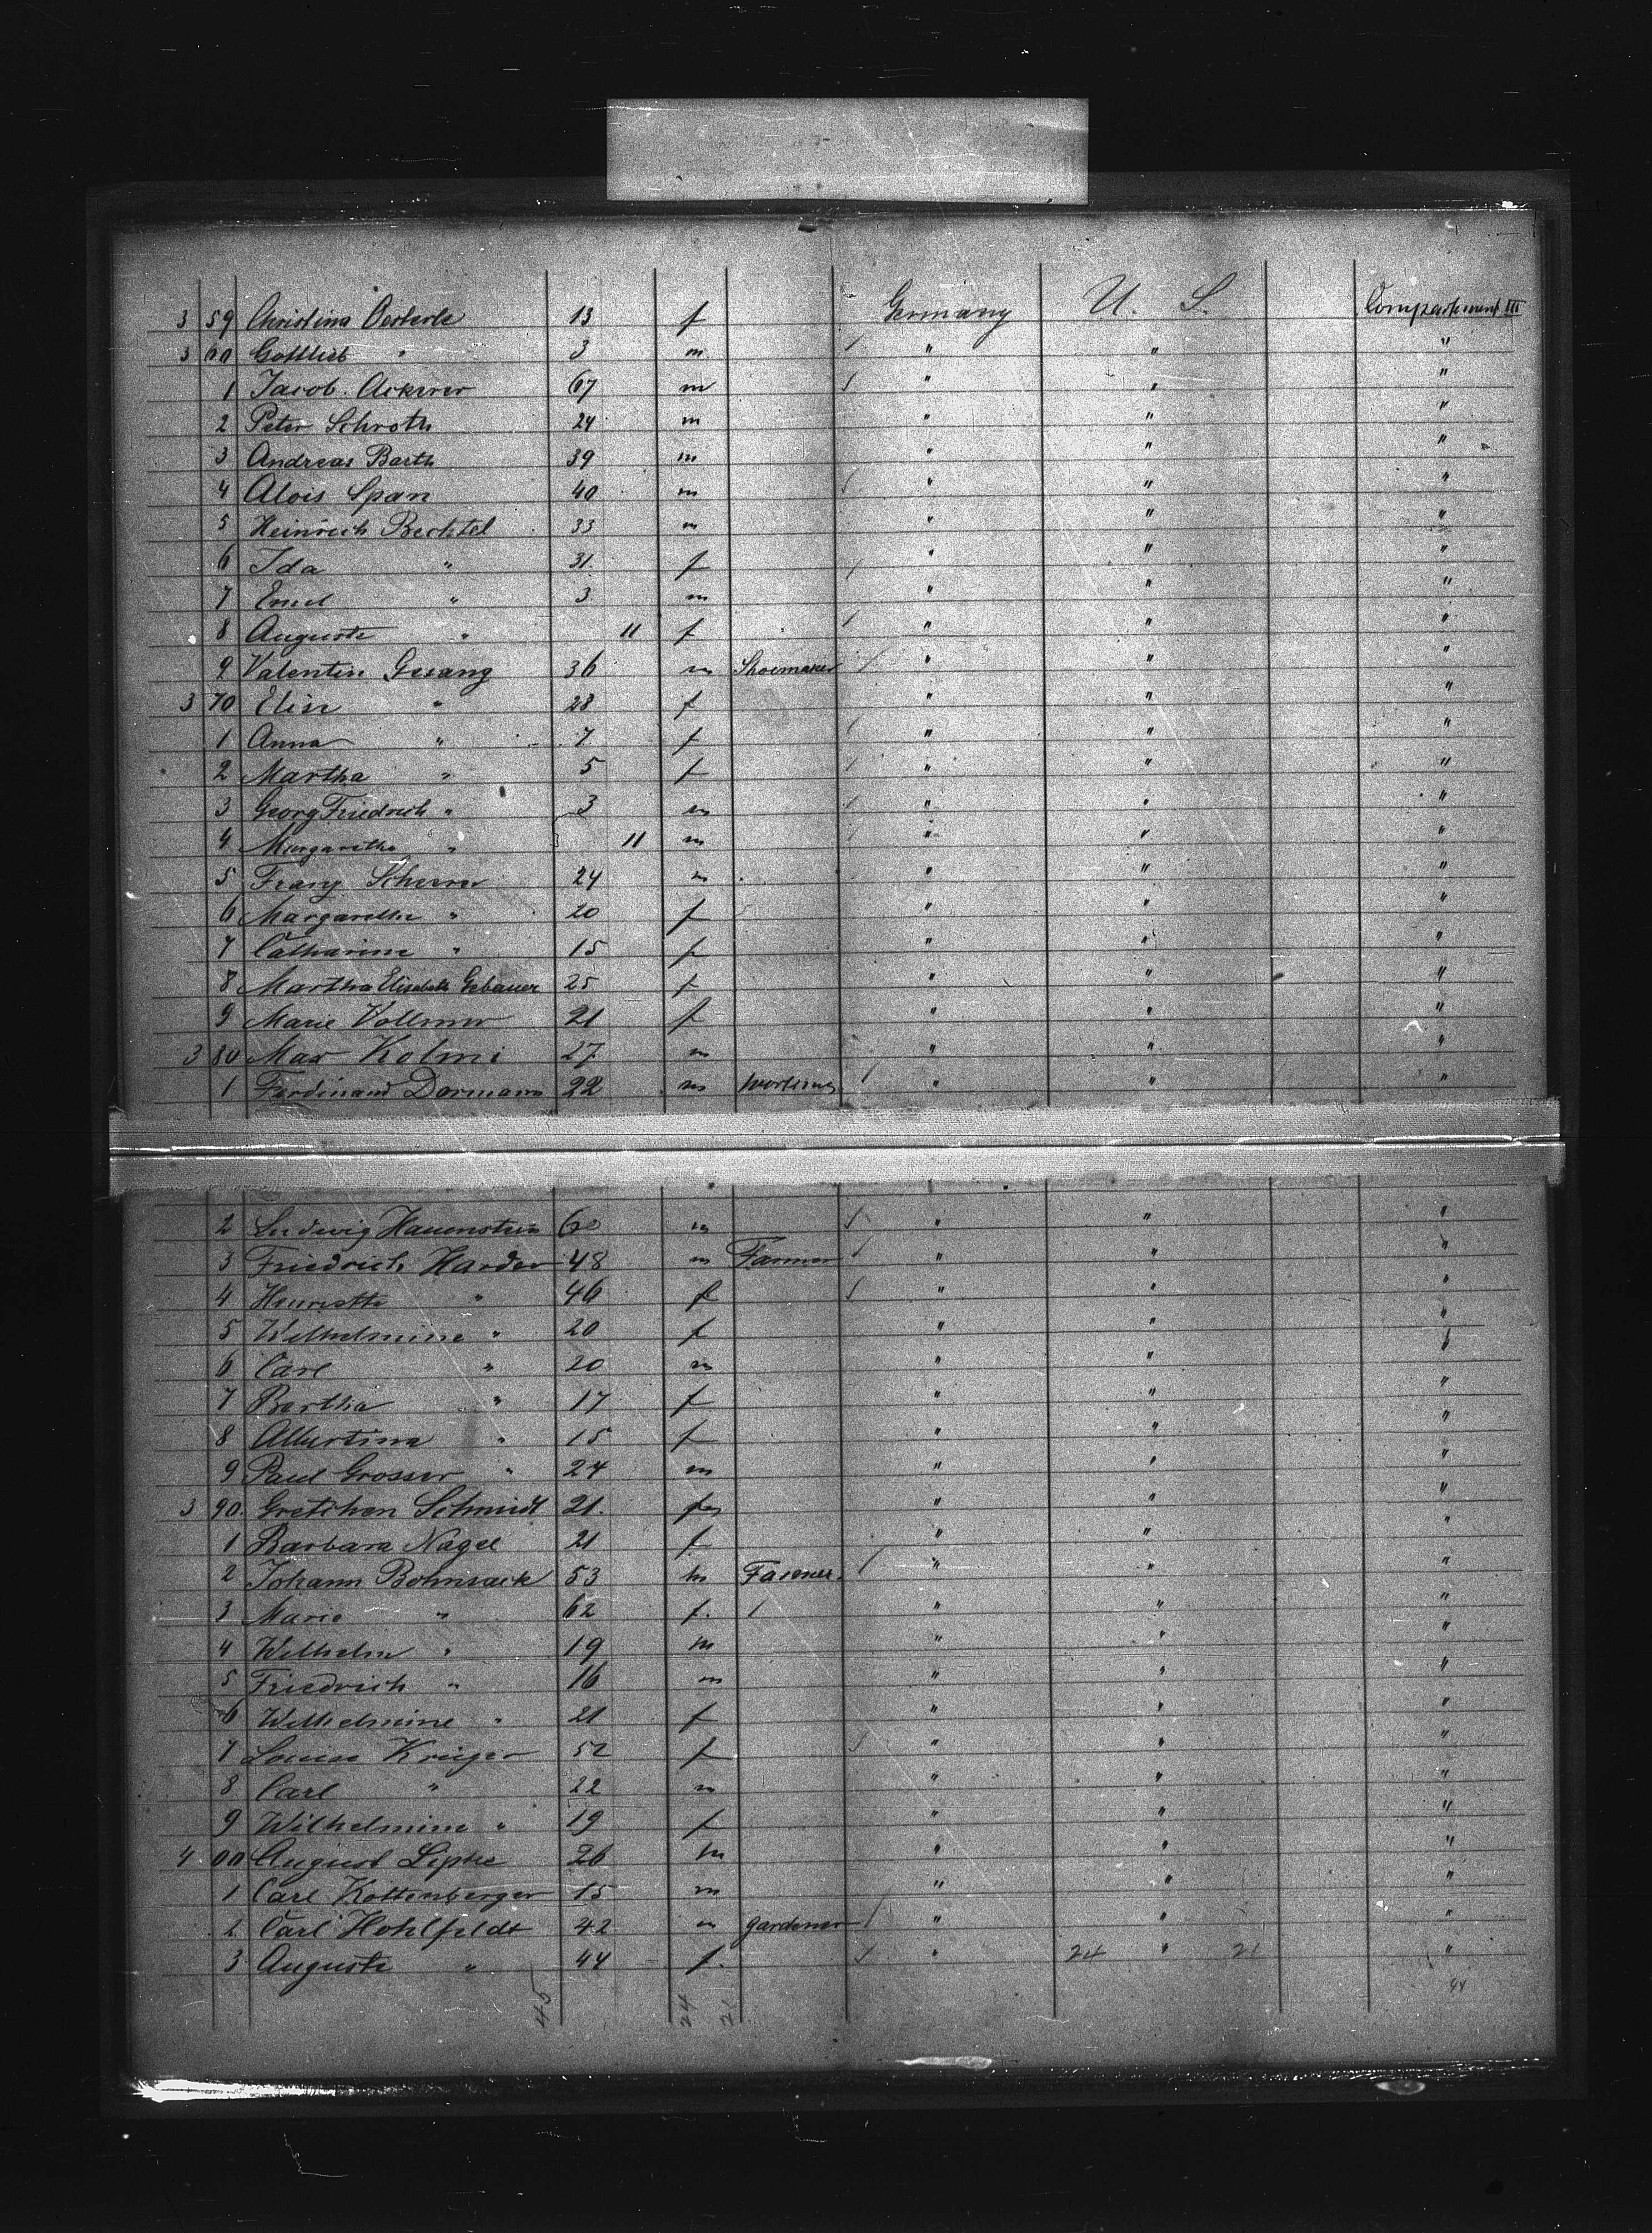 3 59 Christina Oesterle 13 f Germany U. S. Compartement III
3 60 Gottlieb " 3 m " " "
1 Jacob Ackerer 67 m " " "
2 Peter Schroth 24 m " " "
3 Andreas Barth 39 m " " "
4 Alois Span 40 m " " "
5 Heinrich Bechtel 33 m " " "
6 Ida " 31 f " " "
7 Emil " 3 m " " "
8 Auguste " 11 f " " "
9 Valentin Gesang 36 m Shoemaker " " "
3 70 Elise " 28 f " " "
1 Anna " 7 f " " "
2 Martha " 5 f " " "
3 Georg Friedrich " 3 m " " "
4 Margaretha " 11 m " " "
5 Franz 24 m " " "
6 Margarethe " 20 f " " "
7 Catharine " 15 f " " "
8 Martha Elisabeth Gebauer 25 f " " "
9 Marie Vollmer 21 f " " "
3 80 Max Kolmi 27 m " " "
1 Ferdinand Dormann 22 m " " "
2 Ludwig Hauenstein 60 m " " "
3 Friedrich Harder 48 m Farmer " " "
4 Henriette " 46 f " " "
5 Wilhelmine " 20 f " " "
6 Carl " 20 m " " "
7 Bertha " 17 f " " "
8 Albertina " 15 f " " "
9 Paul Grosser " 24 m " " "
3 90. Gretchen Schmidt 21. f " " "
1 Barbara Nagel 21 f " " "
2 Johann Bohnsack 53 m Farmer. " " "
3 Marie " 62 f. " " "
4 Wilhelm " 19 m " " "
5 Friedrich " 16 m " " "
6 Wilhelmine " 21 f " " "
7 Louise Krüger 52 f " " "
8 Carl " 22 m " " "
9 Wilhelmine " 19 f " " "
4 00 August Lipke 26 m " " "
1 Carl Kottenberger 15 m " " "
2 Carl Hohlfeldt 42 m gardener " " "
3 Auguste " 44 f. " 24 " 21 "
45 24 21 44